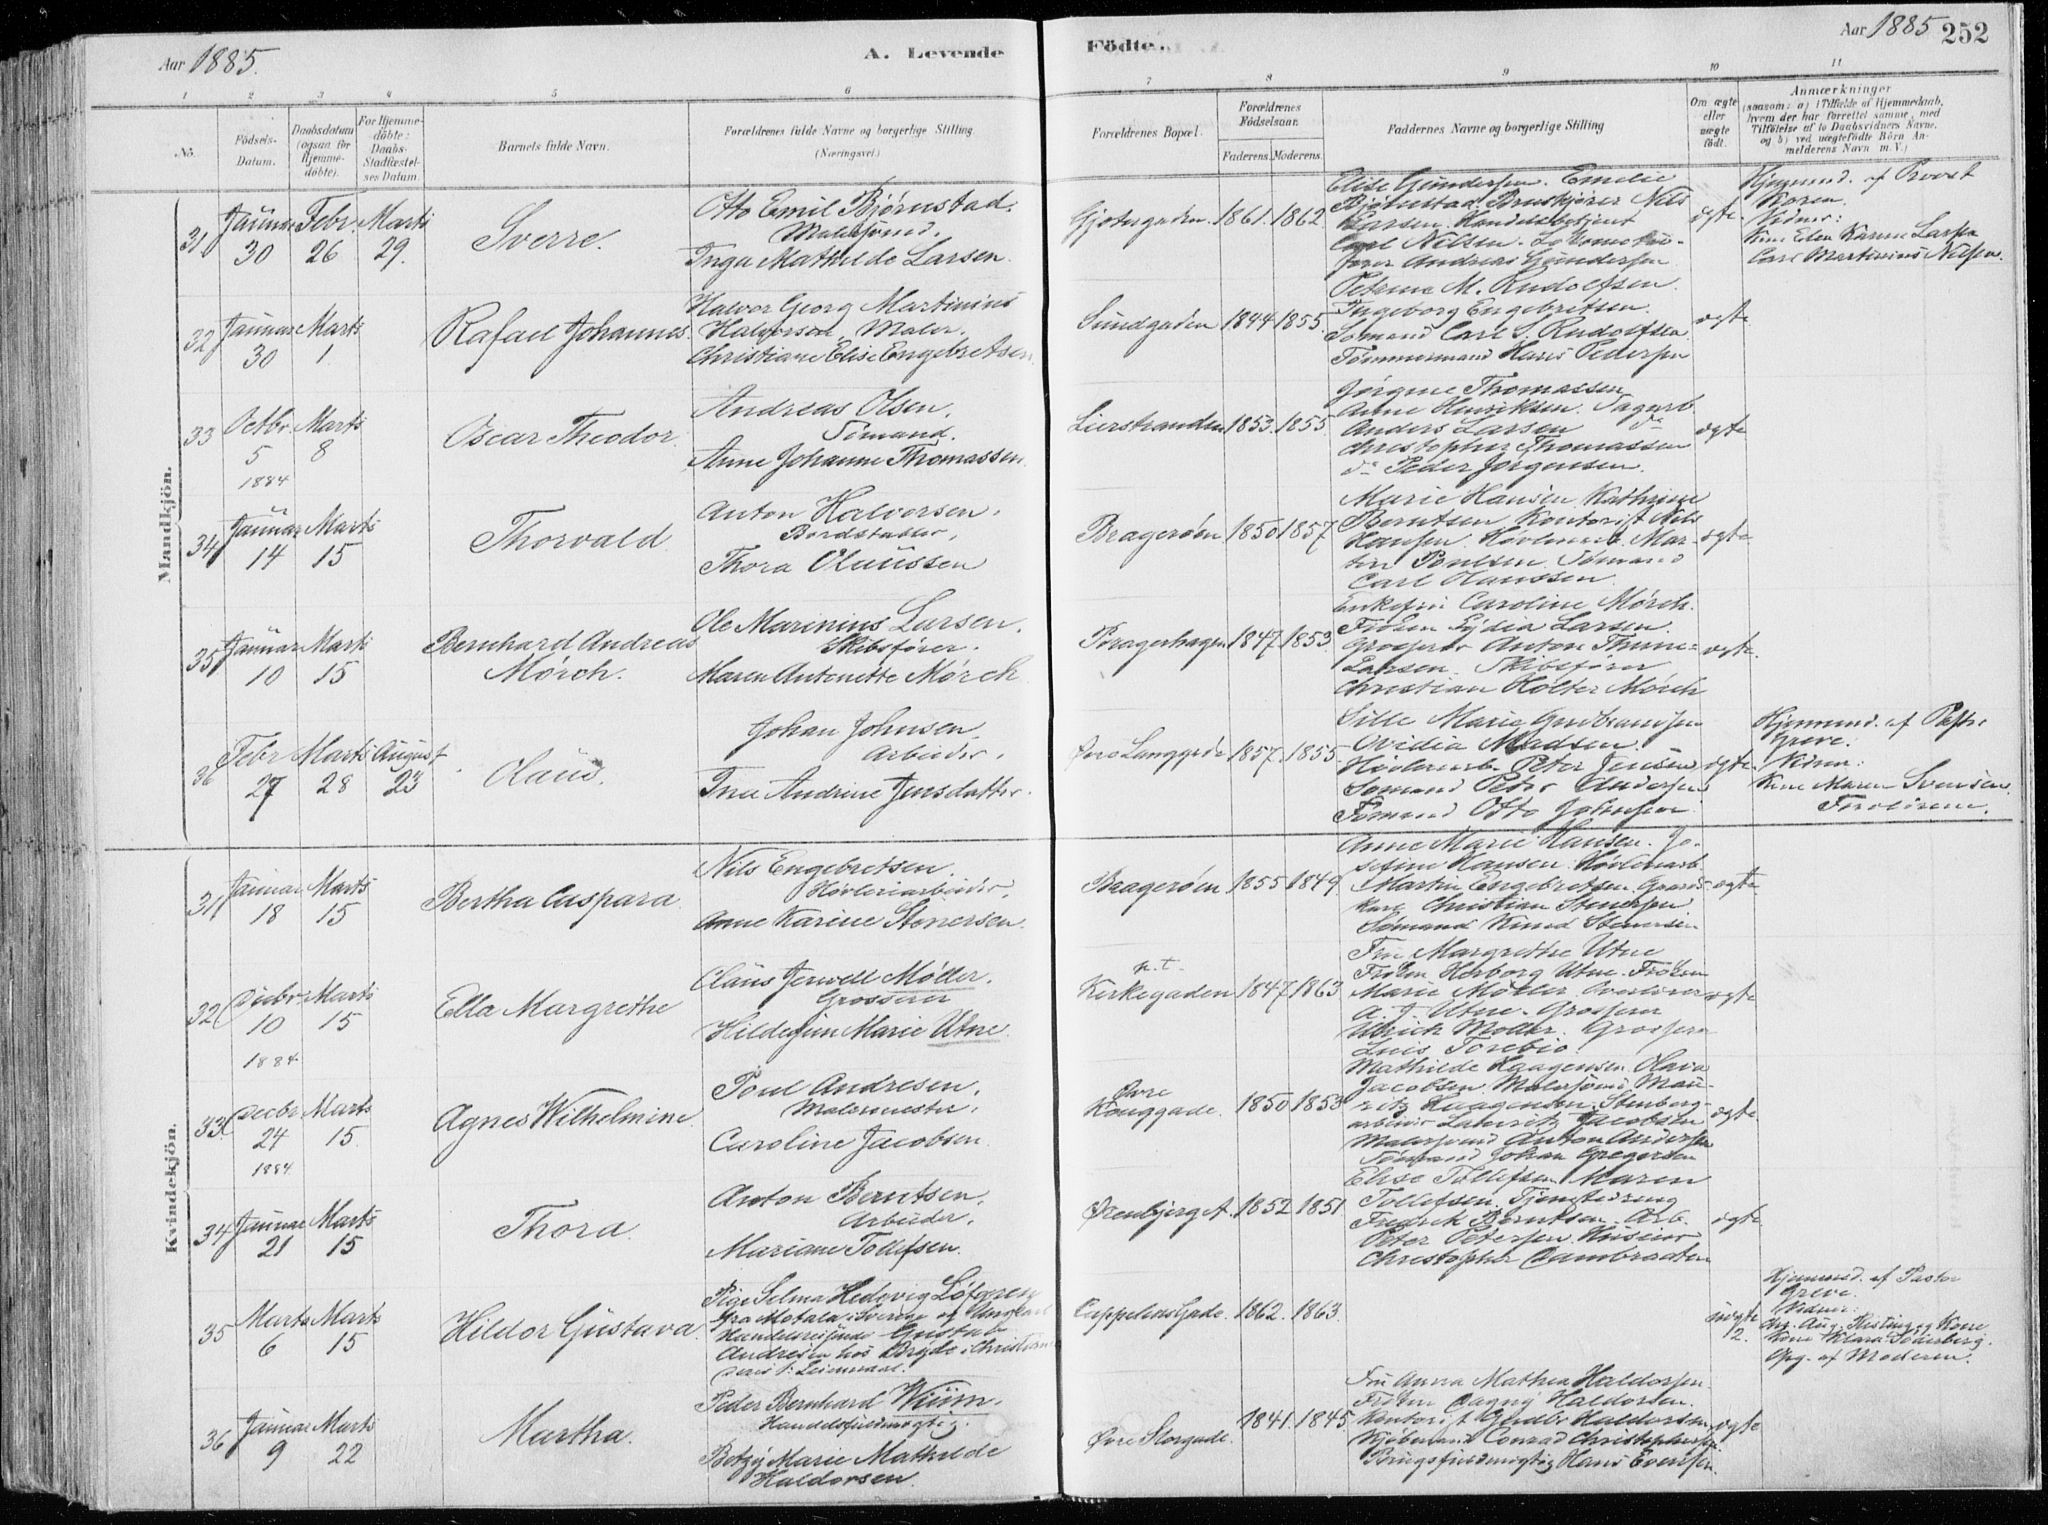 Aar 1885.
A. Levende
Födte.
Aar 1885
252
1 2 3 4 5 6 7 8 9 10 11
No.
Födsels-
Datum.
Daabsdatum
(ogsaa for
Hjemme-
döbte).
For Hjemme-
döbte:
Daabs-
Stadfæstel-
ses Datum.
Barnets fulde Navn.
Forældrenes fulde Navne og borgerlige Stilling
(Næringsvei.)
Forældrenes Bopæl.
Forældrenes
Födselsaar.
Faderens. Moderens.
Faddernes Navne og borgerlige Stilling
Om ægte
eller
uægte
födt.
Anmærkninger
(saasom: a) i Tilfælde af Hjemmedaab,
hvem der har forrettet samme, med
Tilföielse af to Daabsvidners Navne,
og b) ved uægtefödte Börn An-
melderens Navn m. V.)
Mandkjön.
31
Januar
30
Febr.
26
Marts
29.
Sverre.
Otto Emil Bjørnstad.
Malersvend.
Inga Mathilde Larsen.
Gjetergaden. 1861. 1862.
Elise Gundersen. Emelie
Bjørnstad. Nils
Larsen. Handelsbetjent
Carl Nilsen.
Andreas Gundersen
ægte.
Hjemmed. af Provst
Vidner:
Kone Karine Larsen
Carl Martinius Nilsen.
32
Januar
30
Marts
1
Rafael Johannes.
Halvor Georg Martinius
Halvorsen, Maler.
Christiane Elise Engebretsen
Sundgaden 1844 1855.
Petrine M. Rudolfsen.
Ingeborg Engebritsen.
Sømand Carl S. Rudolfsen
Tømmermand Hans Pedersen
ægte
33
Octbr.
5
1884
Marts
8
Oscar Theodor.
Andreas Olsen,
Sømand.
Anne Johanne Thomassen
Lierstranden 1853. 1855.
Jørgine Thomassen
Anne Henriksen. Dagarb.
Anders Larsen
Christopher Thomassen
do Peder Jørgensen.
ægte
34
Januar
14
Marts
15
Thorvald
Anton Halvorsen,
Bordstabler,
Thora Olaussen
Bragerøen 1850 1857
Marie Hansen Kathrine
Berntsen Kontorist Nils
Hansen. Høvleriarb. Mar-
tin Poulsen Sømand
Carl Olaussen.
ægte
35
Januar
10
Marts
15
Bernhard Andreas
Mörch.
Ole Marinius Larsen,
Skibsfører.
Maren Antonette Mörch
Bragerhagen 1847. 1853.
Enkefru Caroline Mörch.
Frøken Lydia Larsen.
Grosserer Anton Thime-
Larsen. Skibsfører
Christian Holter Mörch
ægte.
36
Febr
27
Marts
28
August
23
Olaus.
Johan Johnsen
Arbeider.
Ina Andrine Jensdatter.
Øvre Langgade 1857. 1855
Sille Marie Gulbrandsen
Ovidia Madsen.
Høvleriarb Peter Jensen
Sømand Peter Andersen
Sømand Otto Johnsen
ægte
Hjemmed. af Past.
Greve.
Vidner:
Kone Maren Svensen.
Forældrene.
Kvindekjön.
31
Januar
18
Marts
15
Bertha Caspara
Nils Engebretsen.
Høvleriarbeider,
Anne Karine Stenersen.
Bragerøen 1855 1849
Anne Marie Hansen. Jo-
sefine Hansen. Høvleriarb
Martin Engebretsen. Gaards-
karl Christian Stenersen
Sømand Knud Stenersen
ægte
32
Decbr.
10
1884
Marts
15
Ella Margrethe
Claus Jerwell Möller.
Grosserer
Hildegun Marie Utne.
n. t.
Kirkegaden 1847 1863
Fru Margrethe Utne
Frøken Herborg Utne. Frøken
Marie Möller. Overlærer
A. J. Utne. Grosserer
Ulrich Møller. Grosserer
Luis Torebio.
ægte
33.
Decbr.
24
1884
Marts
15.
Agnes Wilhelmine
Poul Andresen,
Malermester.
Caroline Jacobsen.
Øvre
Konggade. 1850 1853
Mathilde Haagensen Olava
Jacobsen Malersvend Mau-
ritz Haagensen. Stenberg-
arbeider Lauritz Jacobsen
Malersvend Anton Andersen
Sømand Johan Gregersen
ægte.
34
Januar
21
Marts
15
Thora.
Anton Berntsen.
Arbeider.
Mariane Tollefsen.
Ørenbjerget. 1852 1851
Elise Tollefsen Maren
Tollefsen. Tjenestedreng
Fredrik Berntsen. Arb.
Peter Petersen Huseier
Christopher Dambraaten
ægte.
35
Marts
6
Marts
15
Hildor Gustava.
Pige Selma Hedevig Löfgren
fra Motala i Sverige og Ungkarl
Handelsreisende Gustav
Andresen hos Bryde i Christiania
deres 1. Leiermaal.
Cappelens Gade. 1862. 1863.
uægte
12.
Hjemmed. af Pastor
Greve.
Vidner:
Kone Klara Söderberg.
Opg. af Moderen.
36
Januar
9
Marts
22
Martha.
Peder Bernhard Wiüm.
Handelsfuldmægtig.
Betzy Marie Mathilde
Haldorsen.
Øvre Storgade. 1841. 1845
Fru Anna Mathea Haldorsen
Frøken Dagny Haldorsen.
Kontorist Gudbr. Haldorsen
Kjøbmand Conrad Christophersen
Brugsfuldmægtig Hans Evensen.
ægte